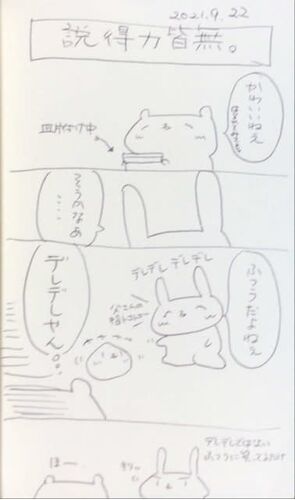 2021.9.22
説得力皆無。
かわいいねぇ
皿片付け中
そうかなあ
‥‥
ふつうだよねぇ
デレデレ デレデレ
父さんの
デレデレやん。
デレデレではない
ふつうに笑ってるだけ
ほー